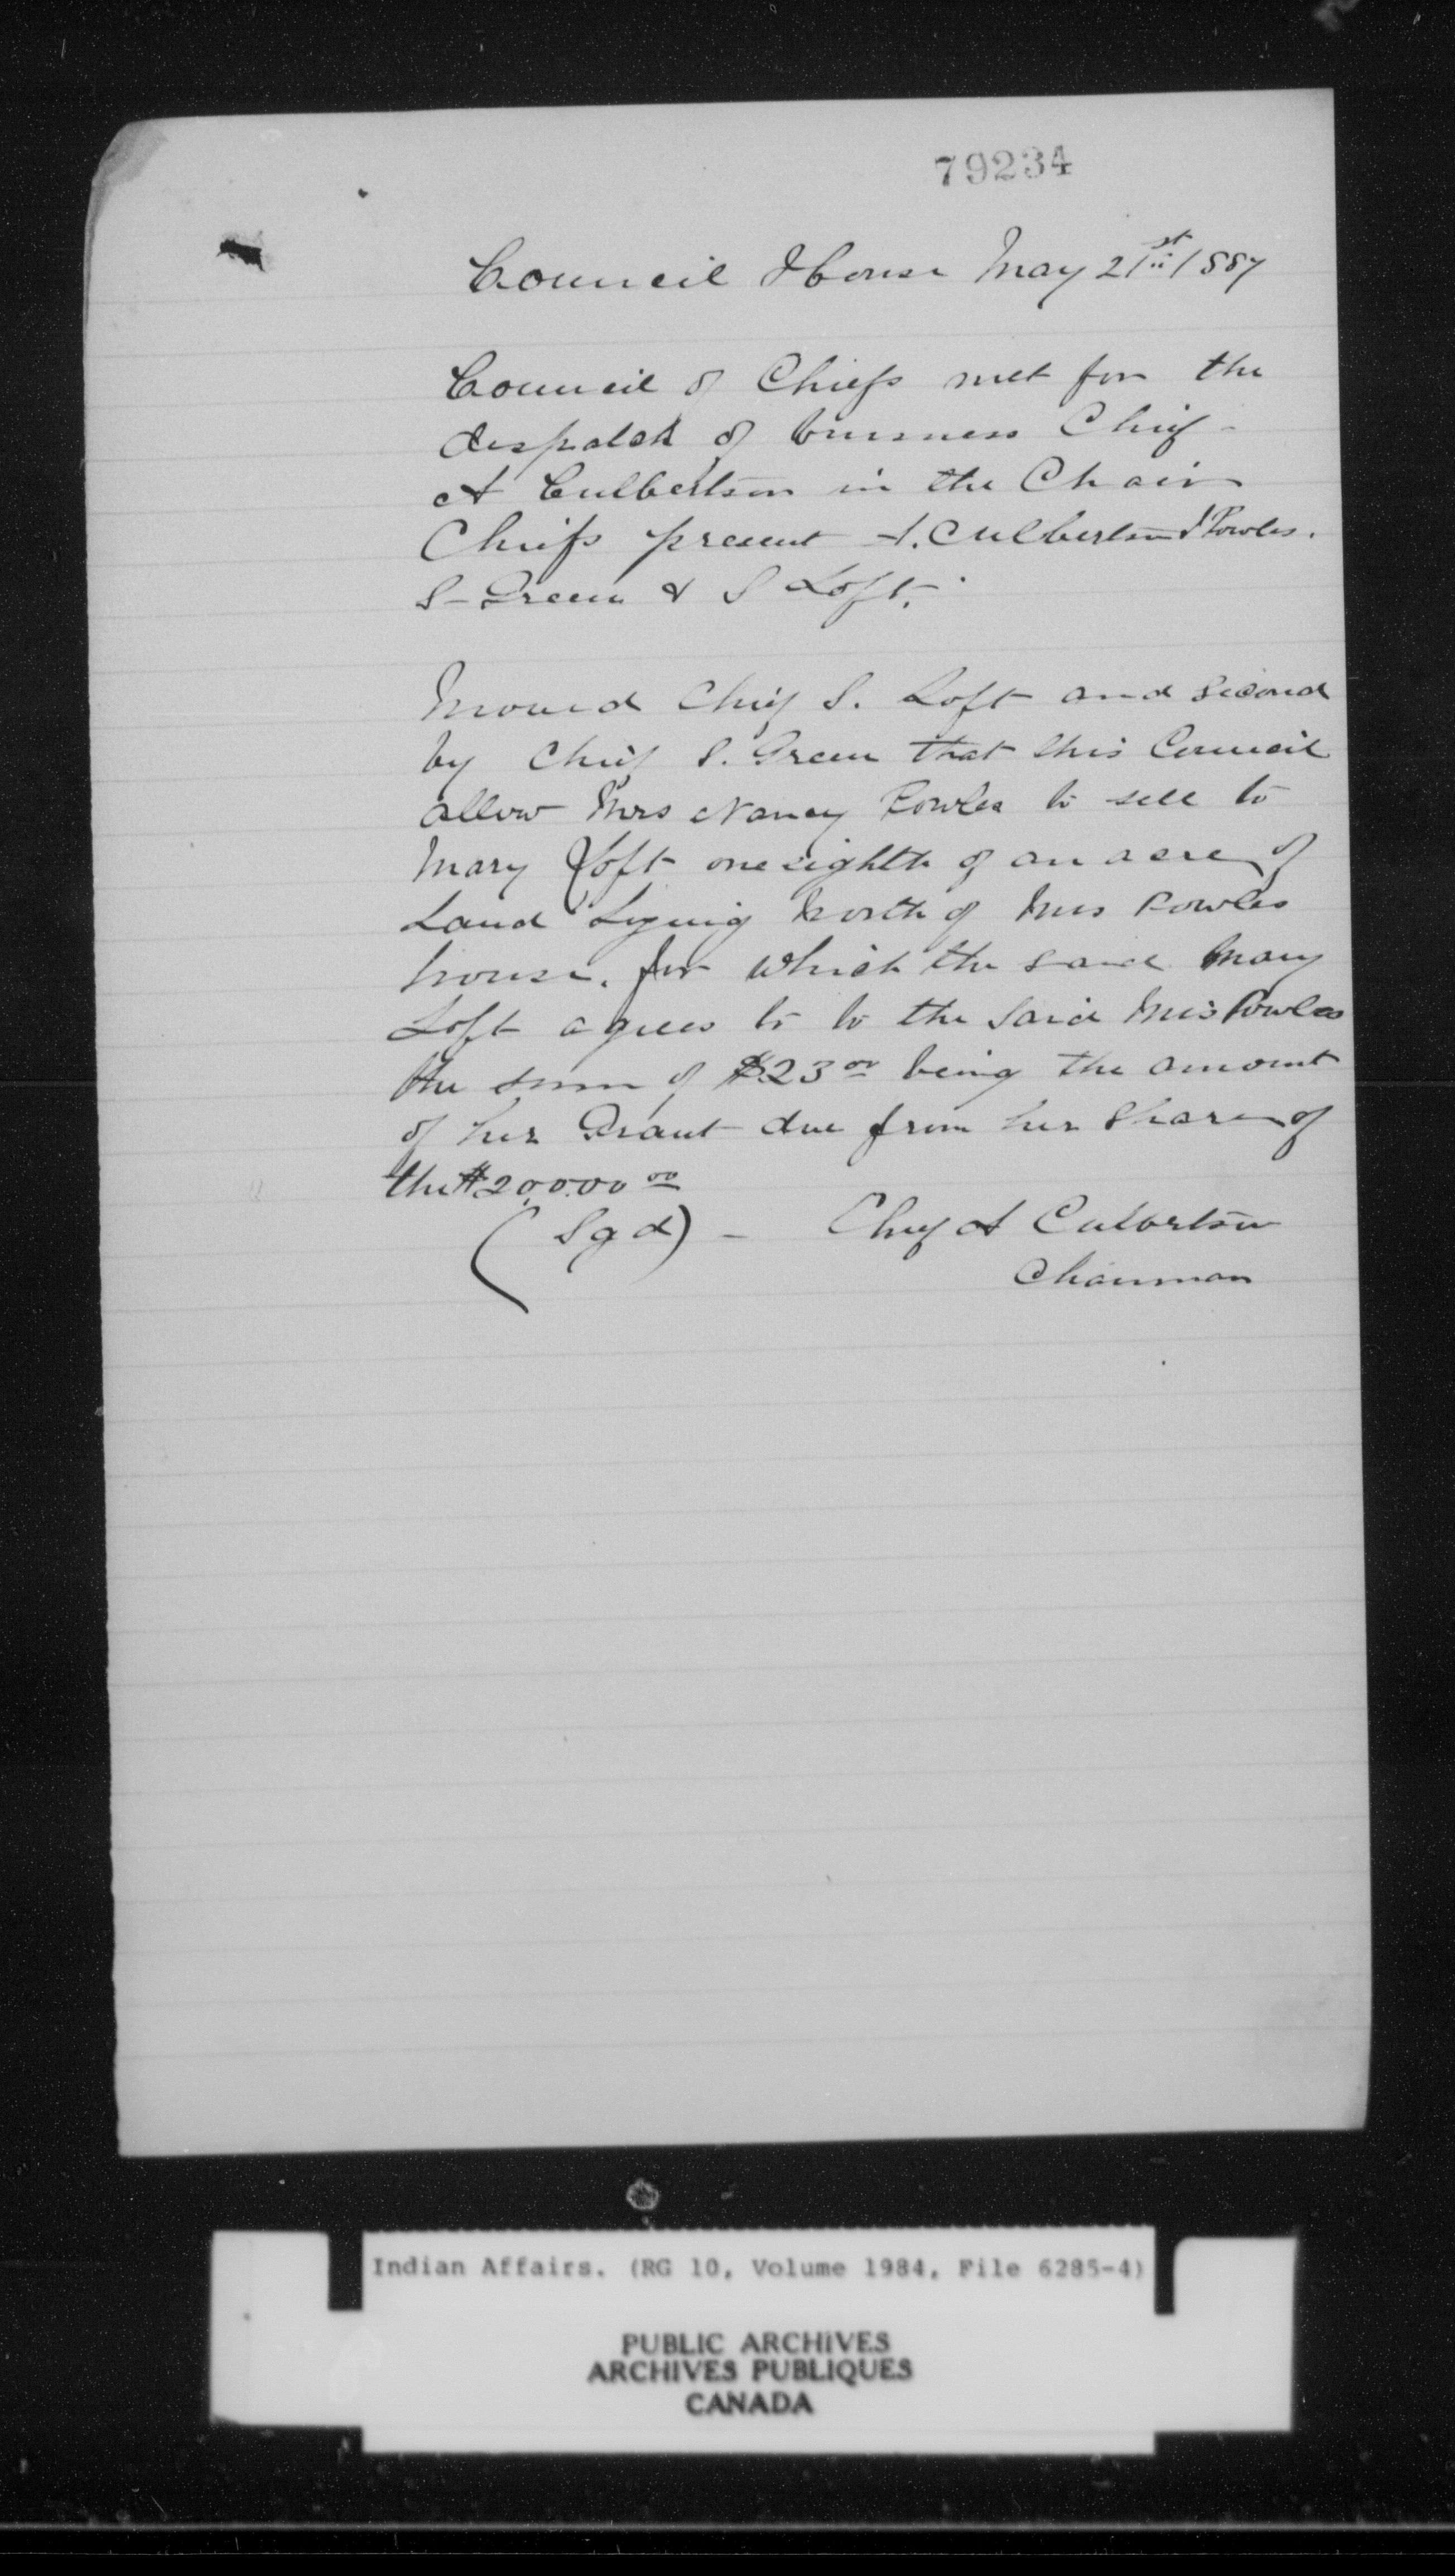 79234
Council House May 21st 1887
Council of Chiefs met for the
dispatch of business Chief
A Culbertson in the Chair
Chiefs present A. Culbertson J Powles.
S. Green & S Loft.
Moved Chief S. Loft and second
by Chief S. Green that this Council
allow Mrs Nancy Powles to sell to
Mary Loft one eighth of an acre of
Land Lyeing North of Mrs Powles
house. for which the said Mary
Loft agrees to to the said Mrs Powles
the sum of $23 00 being the amount
of her Grant due from her Share of
the $20,000 00
(Sgd) - Chief A Culbertson
Chairman
Indian Affairs. (RG 10, Volume 1984, File 6285-4)
PUBLIC ARCHIVES
ARCHIVES PUBLIQUES
CANADA